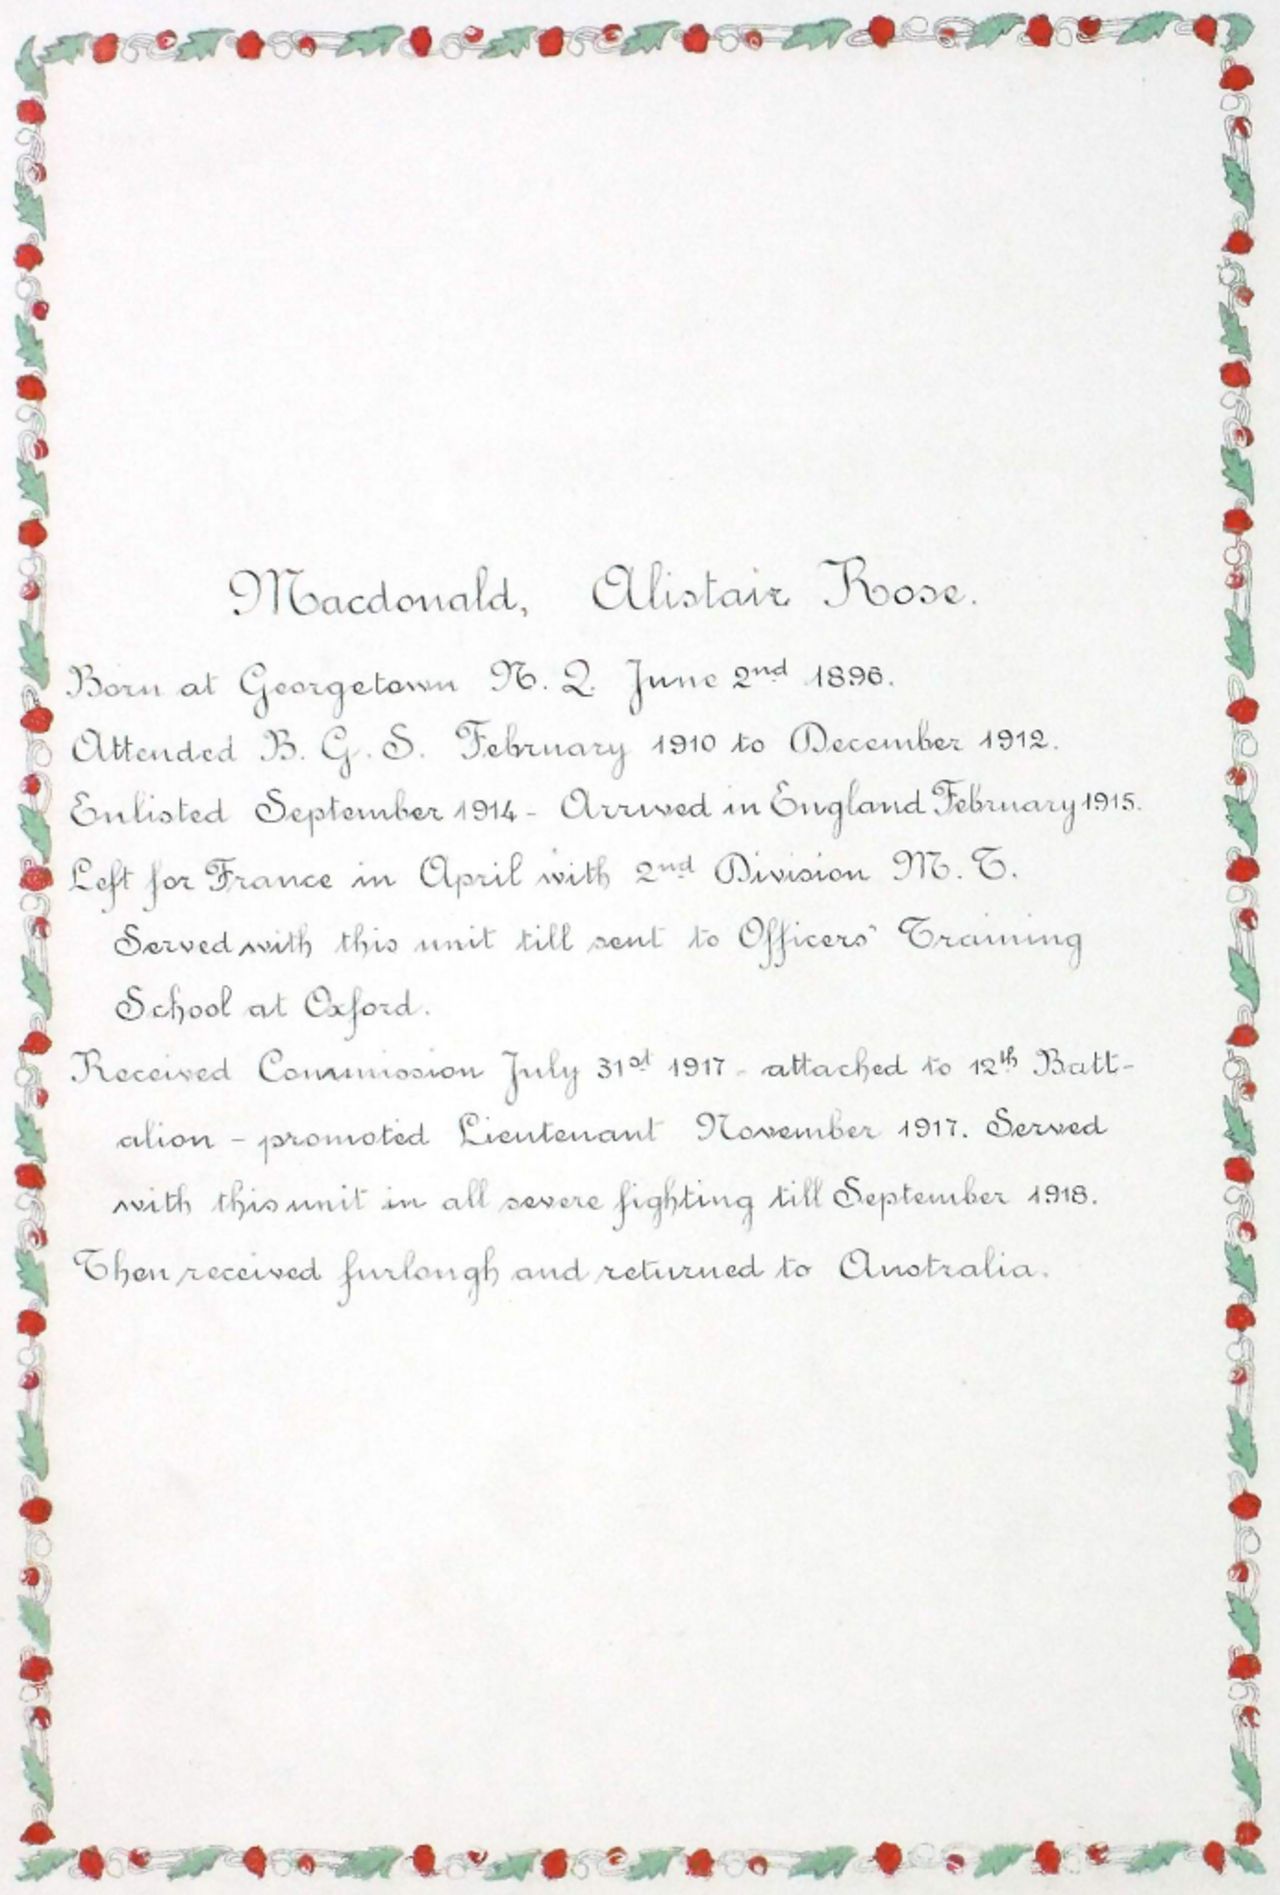 Macdonald, Alistair Rose.
Born at Georgetown N. Q. June 2nd 1896.
Attended B. G. S. February 1910 to December 1912.
Enlisted September 1914 - Arrived in England February 1915.
Left for France in April with 2nd Division M. T.
Served with this unit till sent to Officers' Training
School at Oxford.
Received Commission July 31st 1917 - attached to 12th Batt-
alion - promoted Lieutenant November 1917. Served
with this unit in all severe fighting till September 1918.
Then received furlough and returned to Australia.